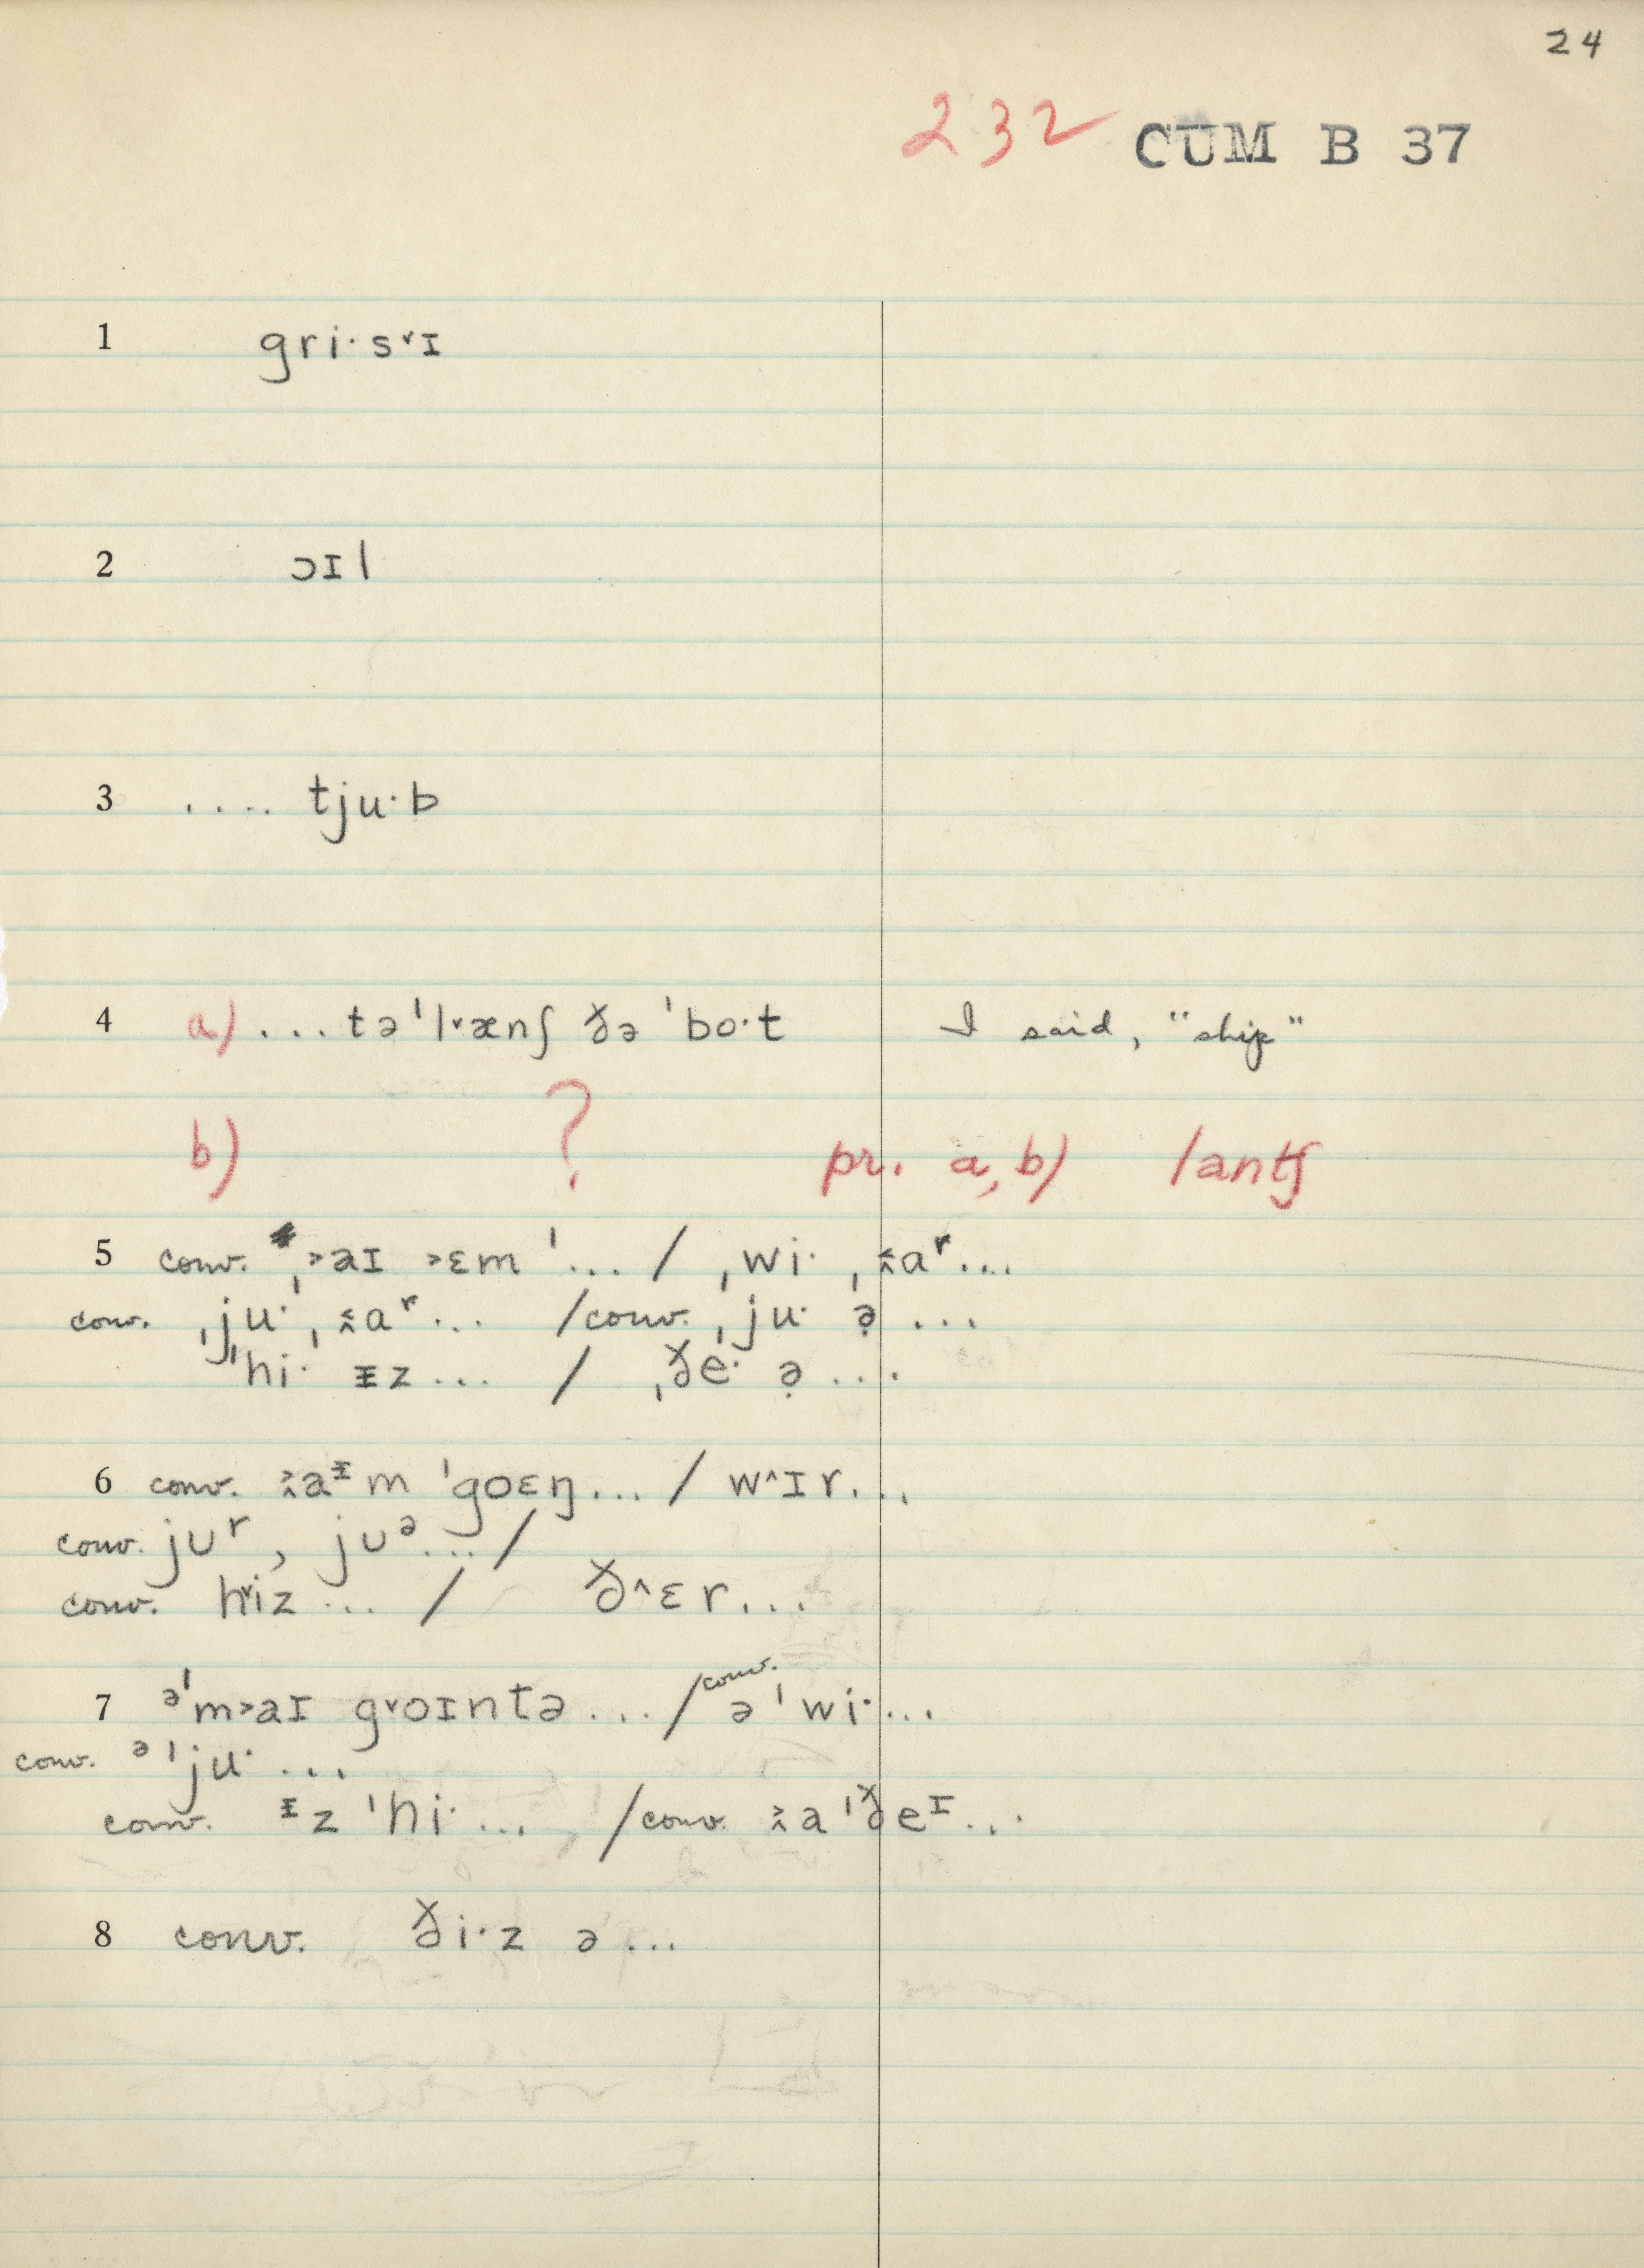 24
232 CUM B 37
1 gri·s˅ɪ
2 ɔɪl
3 .... tju·b
4 a) ...tə'l˅ænʃ ðə 'bo·t I said, "ship"
b) ? pr. a, b) /antʃ
5 conv. ˌ˃aɪ ˃ɛm '... / ˌwi· ˌa^r...
conv. ˌju·ˌ a^r... /conv. ˌju· ə̣ ...
'hi· ᵻz... / ˌðe· ə̣ ...
6 conv. a^ᵻm 'goɛŋ... / w^ɪr...
conv. jᴜ^r, jᴜ^ə.../
conv. h˅iz ... / ð^ɛr...
7 ^ə'm˃aɪ g˅oɪntə .../ conv. ə 'wi·...
conv. ^ə'ju· ...
conv. ^ᵻz 'hi· ... /conv. a'ðe^ɪ...
8 conv. ði·z ə...